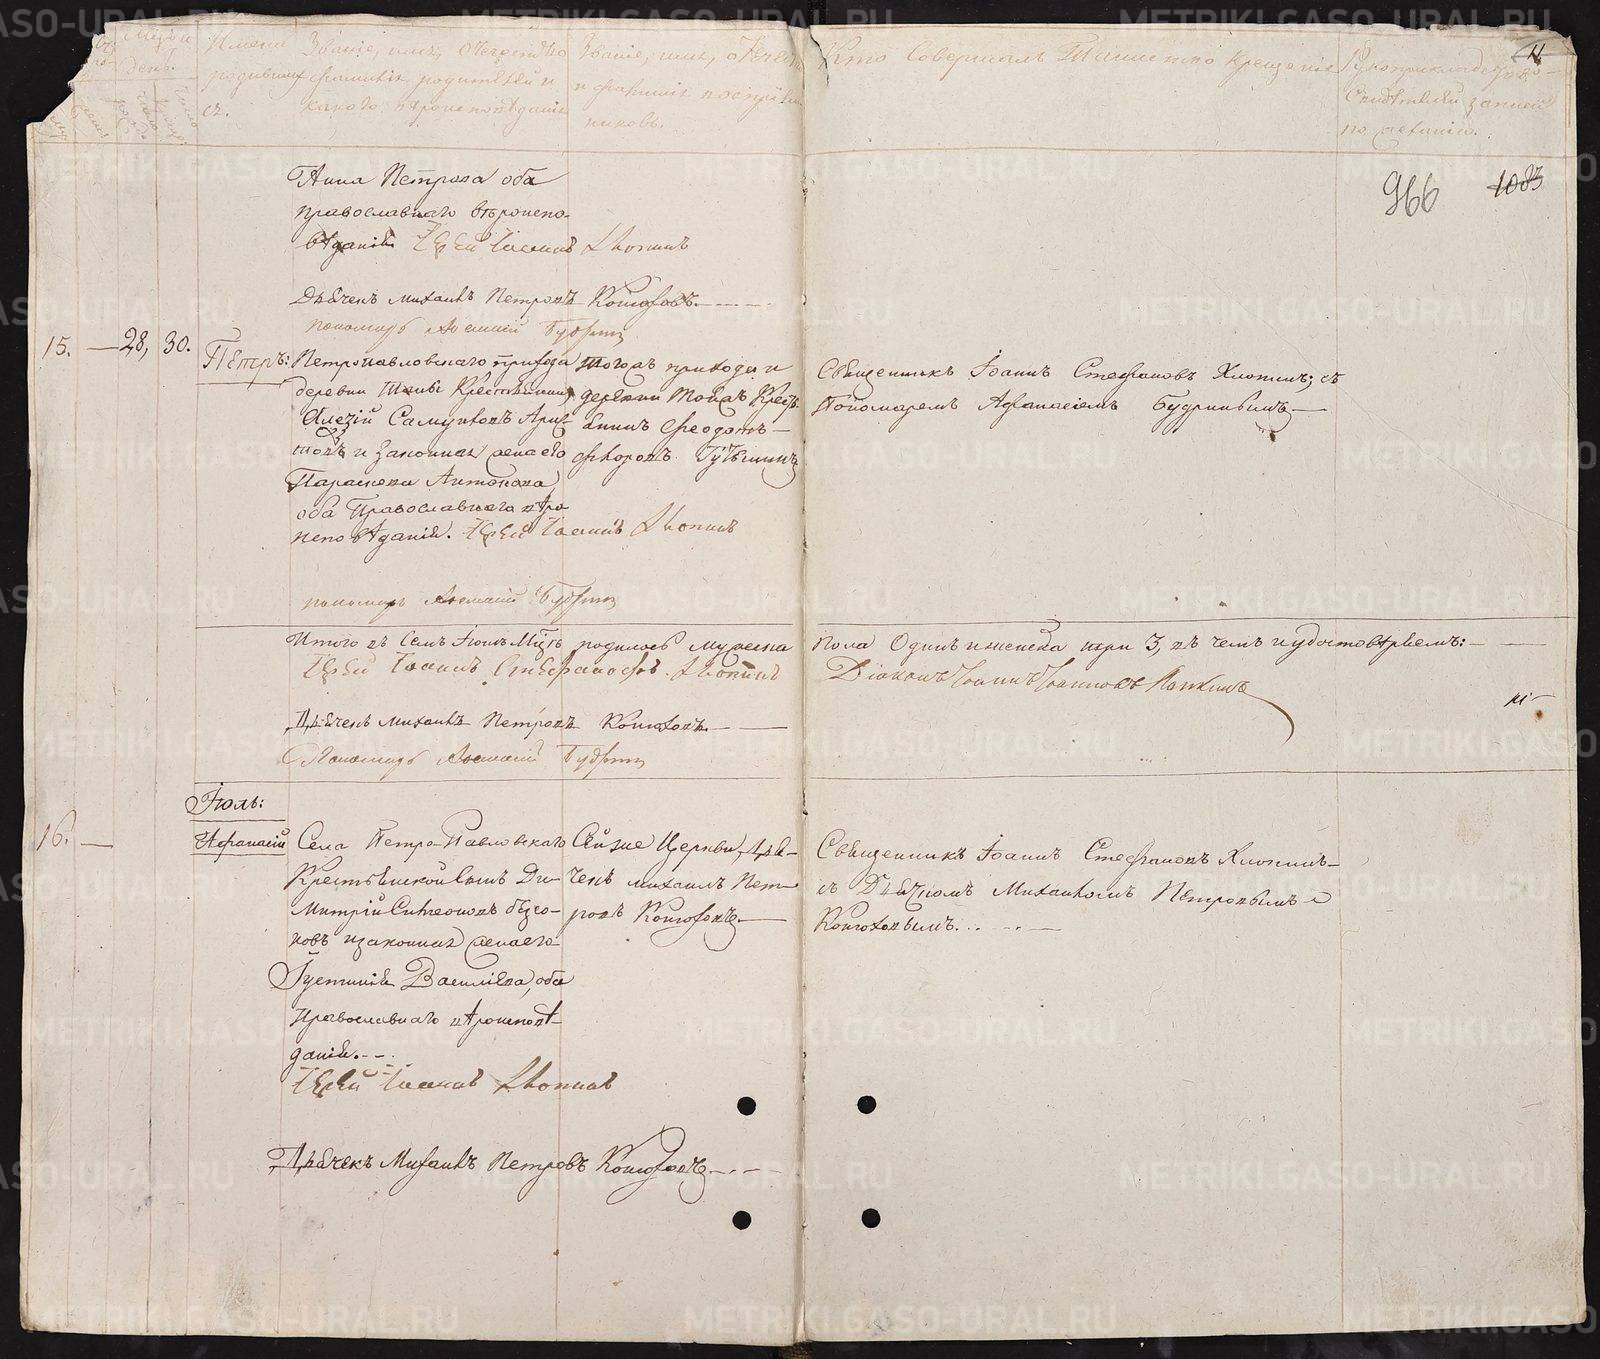 Имена родившихся.
Званіе, имя, отечество и фамилія родителей и какого вѣроисповѣданія
Званіе, имя, отечество и фамилія воспріемниковъ.
Кто совершалъ Таинство Крещенія
Рукоприкладство свидѣтелей записи по желанію.
966 1083
Анна Петрова оба
православнаго вѣроиспо-
вѣданія Іерей Іоаннъ Хлопинъ
Дьячекъ Михаилъ Петровъ Конюховъ.
пономарь Афанасій Будринъ
15. — 28, 30.
Петръ:
Петропавловскаго прихода
деревни крестьянинъ
Алексій Самуиловъ
и законная жена его
Параскева Антонова,
оба Православнаго вѣро
исповѣданія. Іерей Іоаннъ Хлопинъ
тогожъ прихода и
деревни тойжъ Крест-
янинъ Феодотъ
Священникъ Іоаннъ Стефановъ Хлопинъ; съ
Пономаремъ Афанасіемъ Будринымъ
пономарь Афанасій Будринъ
Итого въ семъ Іюнѣ Мцѣ родилось мужеска пола Одинъ и женска три 3, въ чемъ и удостовѣряемъ:
Іерей Іоаннъ Стефановъ Хлопинъ Діаконъ Іоаннъ Іоанновъ
Дьячекъ Михаилъ Петровъ Конюховъ
Пономарь Афанасій Будринъ
Іюль:
16. —
Афанасій
Села Петро-Павловскаго
Крестьянской сынъ Ди-
митрій Симеоновъ
и законная жена его
Іустинія Василіева, оба
Православнаго вѣроисповѣ-
данія.
Сейже Церкви, Дья-
чекъ Михаилъ Пет-
ровъ Конюховъ
Священникъ Іоаннъ Стефановъ Хлопинъ
съ Дьячкомъ Михаиломъ Петровымъ
Конюховымъ.
Іерей Іоаннъ Хлопинъ
Дьячекъ Михаилъ Петровъ Конюховъ